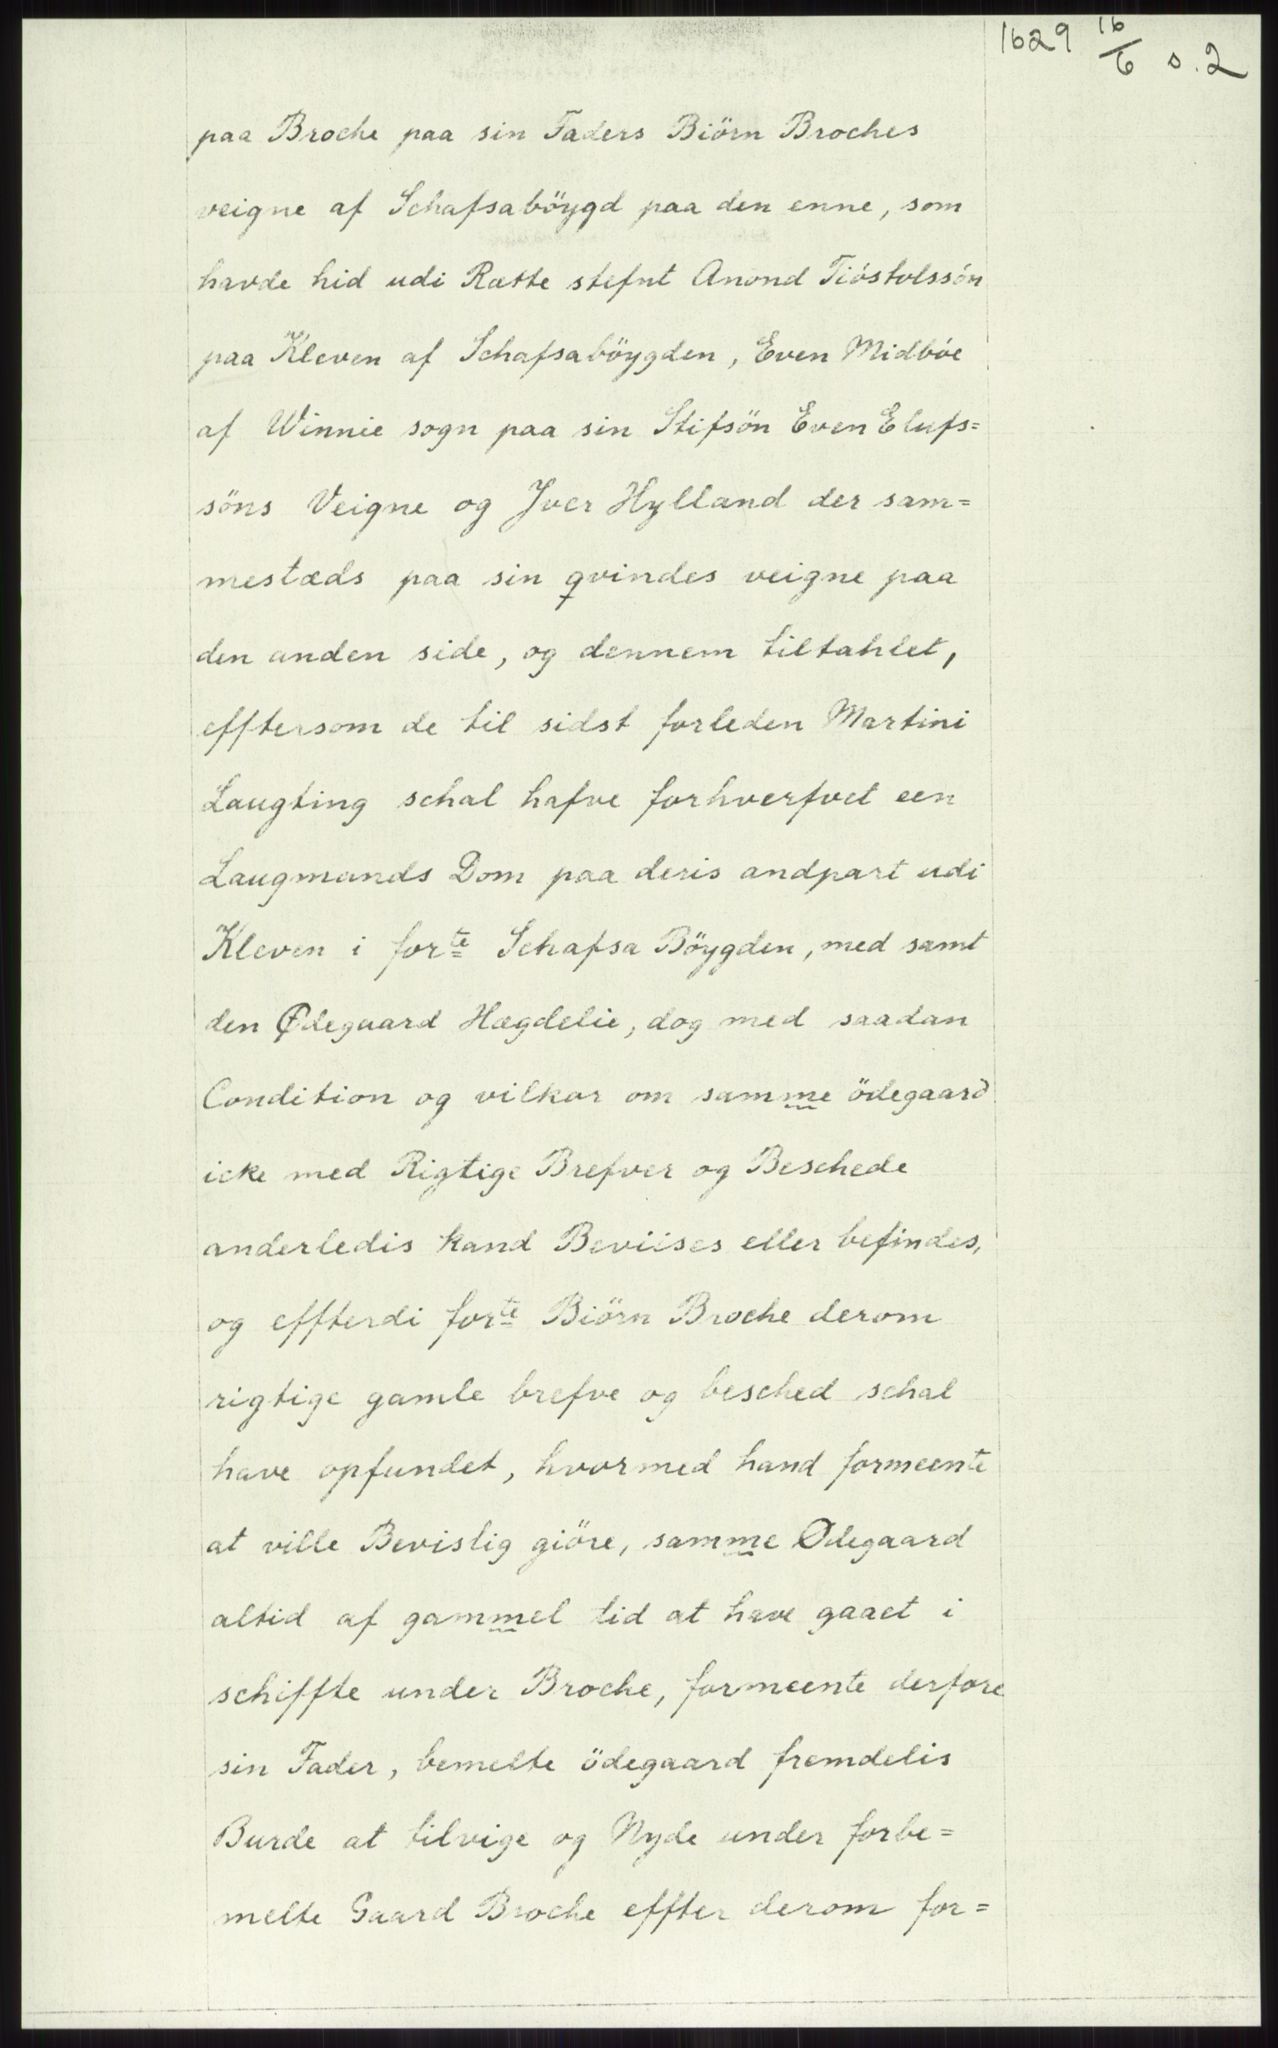 1629 16/6 s. 2
paa Broche paa sin Faders Biörn Broches
veigne af Schafsaböygd paa den enne, som
havde hid udi Rætte stefnt Anond Tióstolssön
paa Kleven af Schafsaböygden, Even Midböe
af Winnie sogn paa sin Stifsön Even Elufs=
söns Veigne og Jver Hylland der sam=
mestæds paa sin qvindes veigne paa
den anden side, og dennem tiltahlet,
efftersom de til sidst forleden Martini
Laugting schal hafve forhverfvet een
Laugmands Dom paa deris andpart udi
Kleven i forte Schafsa Böygden, med samt
den Ødegaard Hægdelie, dog med saadan
Condition og vilkor om samme ödegaard
icke med Rigtige Brefver og Beschede
anderledis kand Beviises eller befindes,
og effterdi forte Biörn Broche derom
rigtige gamle brefve og besched schal
have opfundet, hvormed hand formeente
at ville Bevislig giöre, samme Ødegaard
altid af gammel tid at have gaaet i
schiffte under Broche, formeente derfore
sin Fader, bemelte ödegaard fremdelis
Burde at tilvige og Nyde under forbe=
melte Gaard Broche effter derom for=